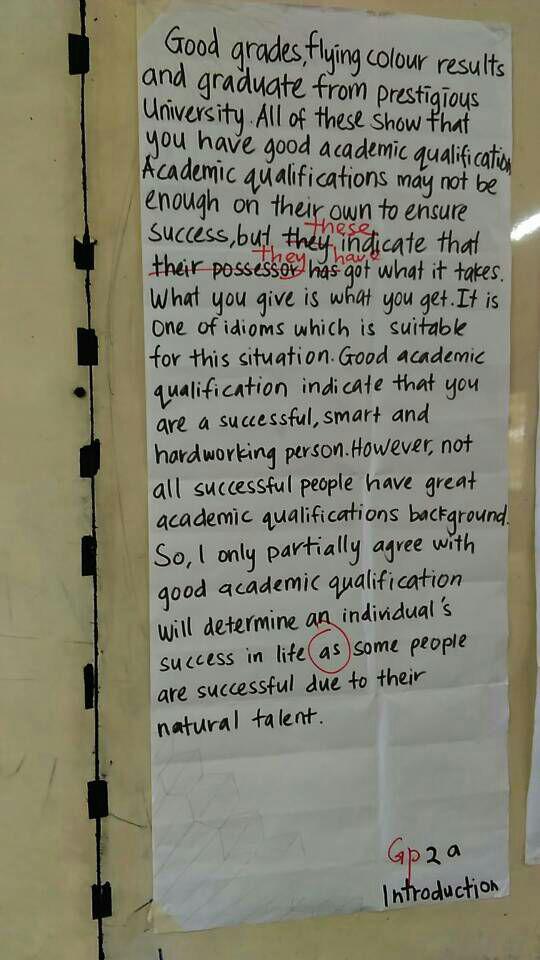 Good grades, flying colour results
and graduate from prestigious
University. All of these show that
you have good academic qualification
Academic qualifications may not be
enough on their own to ensure
these
success, but they indicate that
they have
their possessor has got what it takes.
What you give is what you get. It is
one of idioms which is suitable
for this situation. Good academic
qualification indicate that you
are a successful, smart and
hardworking person. However, not
all successful people have great
academic qualifications background.
So, I only partially agree with
good academic qualification
will determine an individual's
success in life as some people
are successful due to their
natural talent.
Gp 2a
Introduction